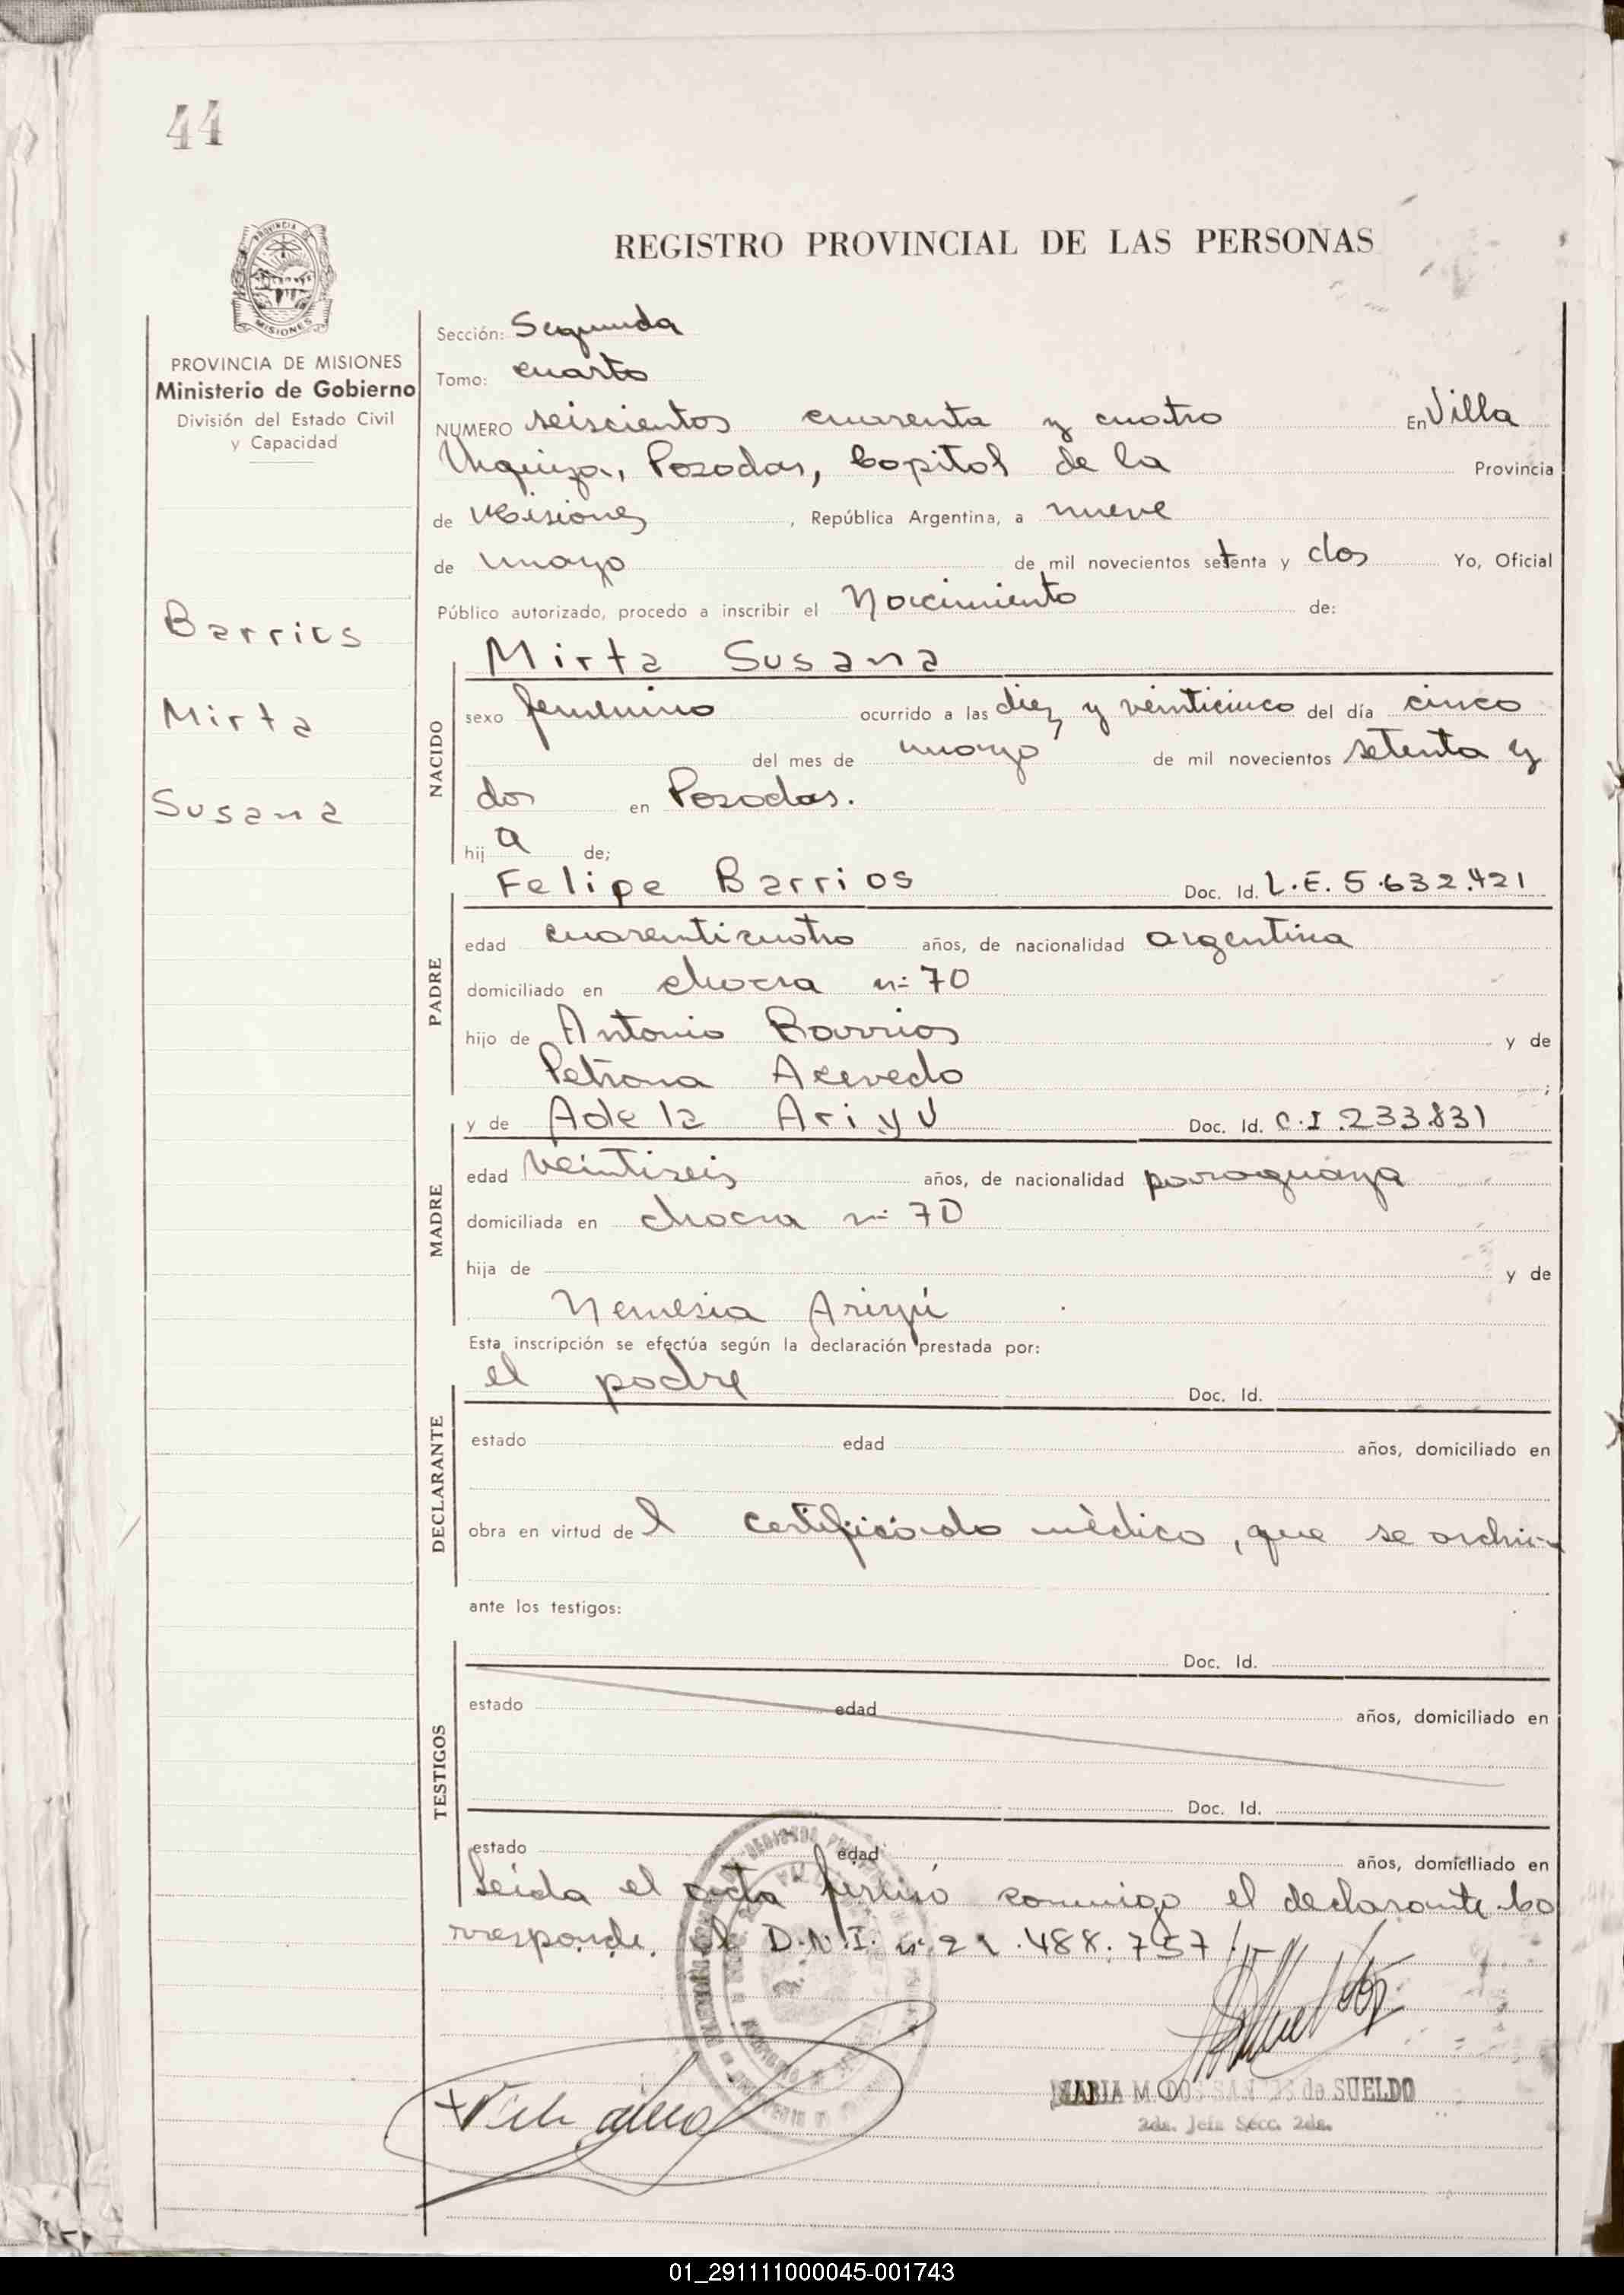 44
PROVINCIA DE MISIONES
PROVINCIA DE MISIONES
Ministerio de Gobierno
División del Estado Civil
y Capacidad
Barrios
Mirta
Susana
REGISTRO PROVINCIAL DE LAS PERSONAS
Sección: Segunda
Tomo: cuarto
NUMERO seiscientos cuarenta y cuatro En Villa
Urquiza, Posadas, Capital de la Provincia
de Misiones, República Argentina, a nueve
de mayo de mil novecientos setenta y dos Yo, Oficial
Público autorizado, procedo a inscribir el Nacimiento de:
Mirta Susana
NACIDO
sexo femenino ocurrido a las diez y veinticinco del día cinco
del mes de mayo de mil novecientos setenta y
dos en Posadas.
hij a de;
Felipe Barrios Doc. Id. L.E. 5.632.421
PADRE
edad cuarenticuatro años, de nacionalidad argentina
domiciliado en chacra nº 70
hijo de Antonio Barrios y de
Petrona Acevedo ;
y de Adela Ariyú Doc. Id. C.I. 233.831
MADRE
edad veintiseis años, de nacionalidad paraguaya
domiciliada en chacra nº 70
hija de y de
Nemesia Ariyú
Esta inscripción se efectúa según la declaración prestada por:
el padre Doc. Id.
DECLARANTE
estado edad años, domiciliado en
obra en virtud de l certificado médico, que se archiva
ante los testigos:
Doc. Id.
TESTIGOS
estado edad años, domiciliado en
Doc. Id.
estado edad años, domiciliado en
Leída el acta firmó conmigo el declarante. Co
rresponde el D.N.I. nº 22.488.757
MARIA M. de SUELDO
2da. Jefa Secc. 2da.
01_291111000045-001743